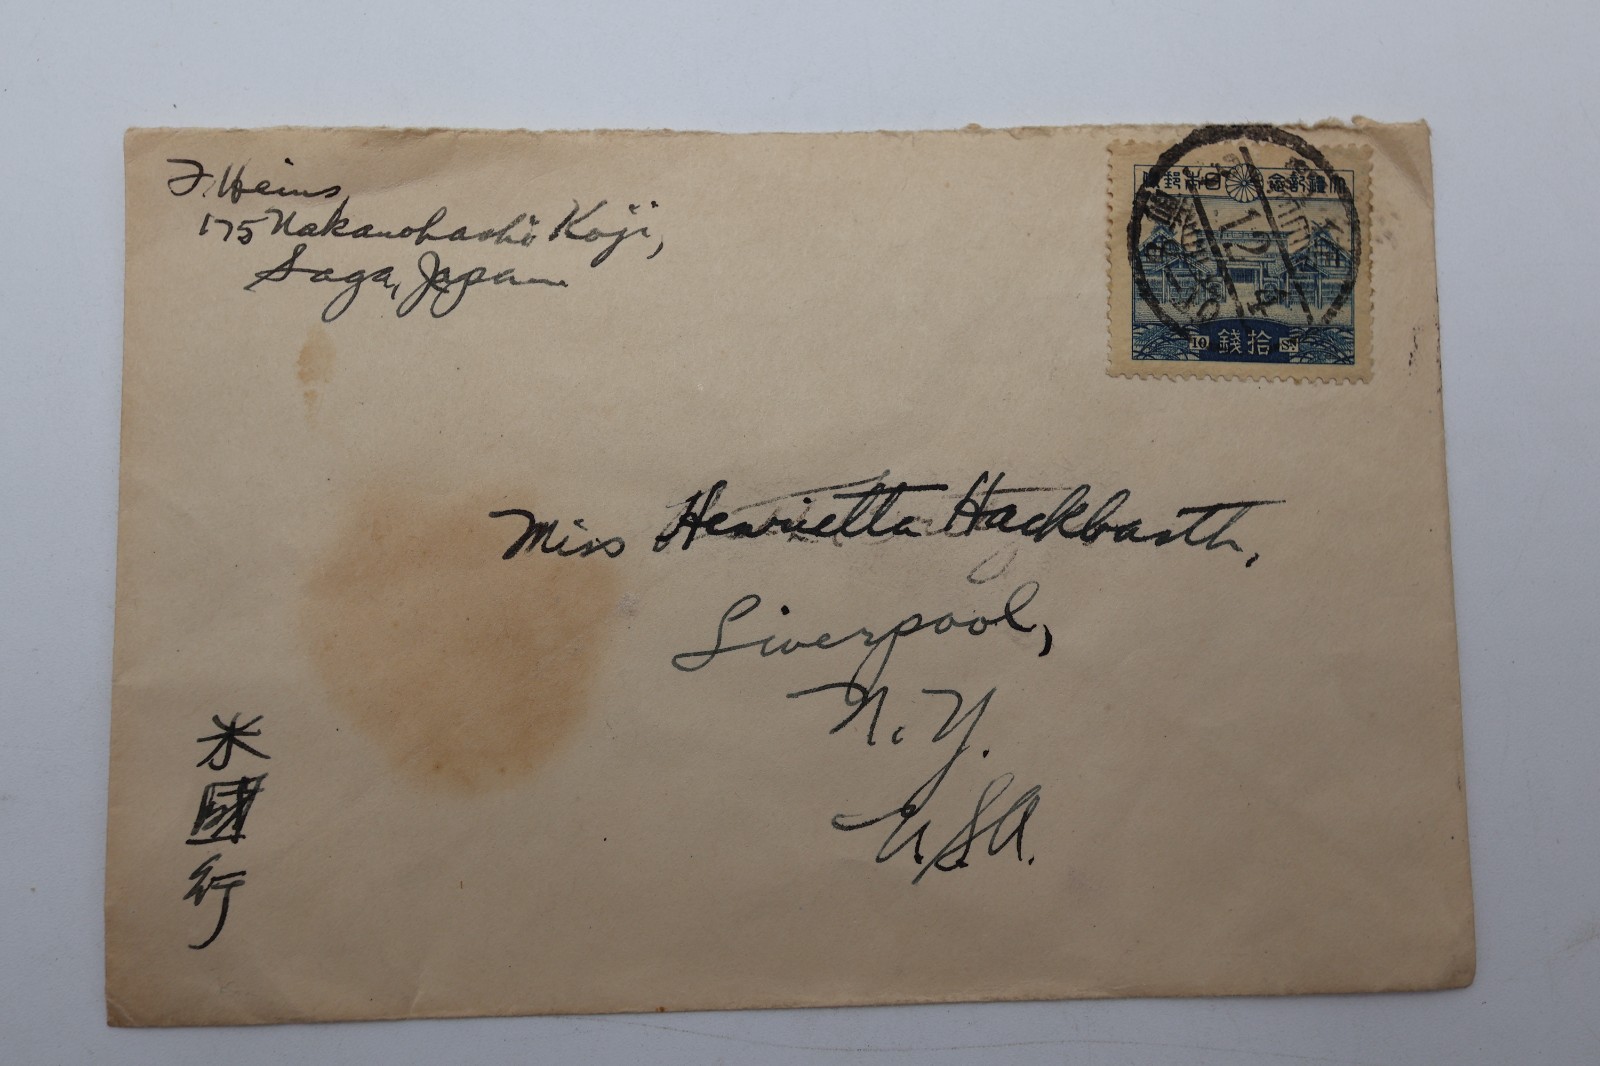 F. Heins
175 Nakanohashi Koji,
Saga, Japan
大禮記念 日本郵便
10 拾錢 Sn
Miss Henrietta Hackbarth,
Liverpool,
N. Y.
U.S.A.
米國行